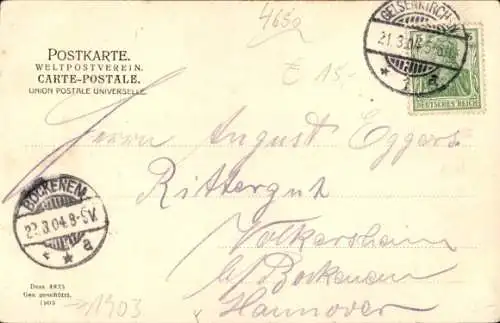 465a
GELSENKIRCHEN
21.3.04.
* 2 a
DEUTSCHES REICH
POSTKARTE.
WELTPOSTVEREIN.
CARTE-POSTALE.
UNION POSTALE UNIVERSELLE.
€ 15.-
Herrn August Eggers
Rittergut
Volkersheim
b/ Bockenem
Hannover
BOCKENEM
22.3.04.8-9V.
* * a
Dess
Ges. geschützt.
1903
1903